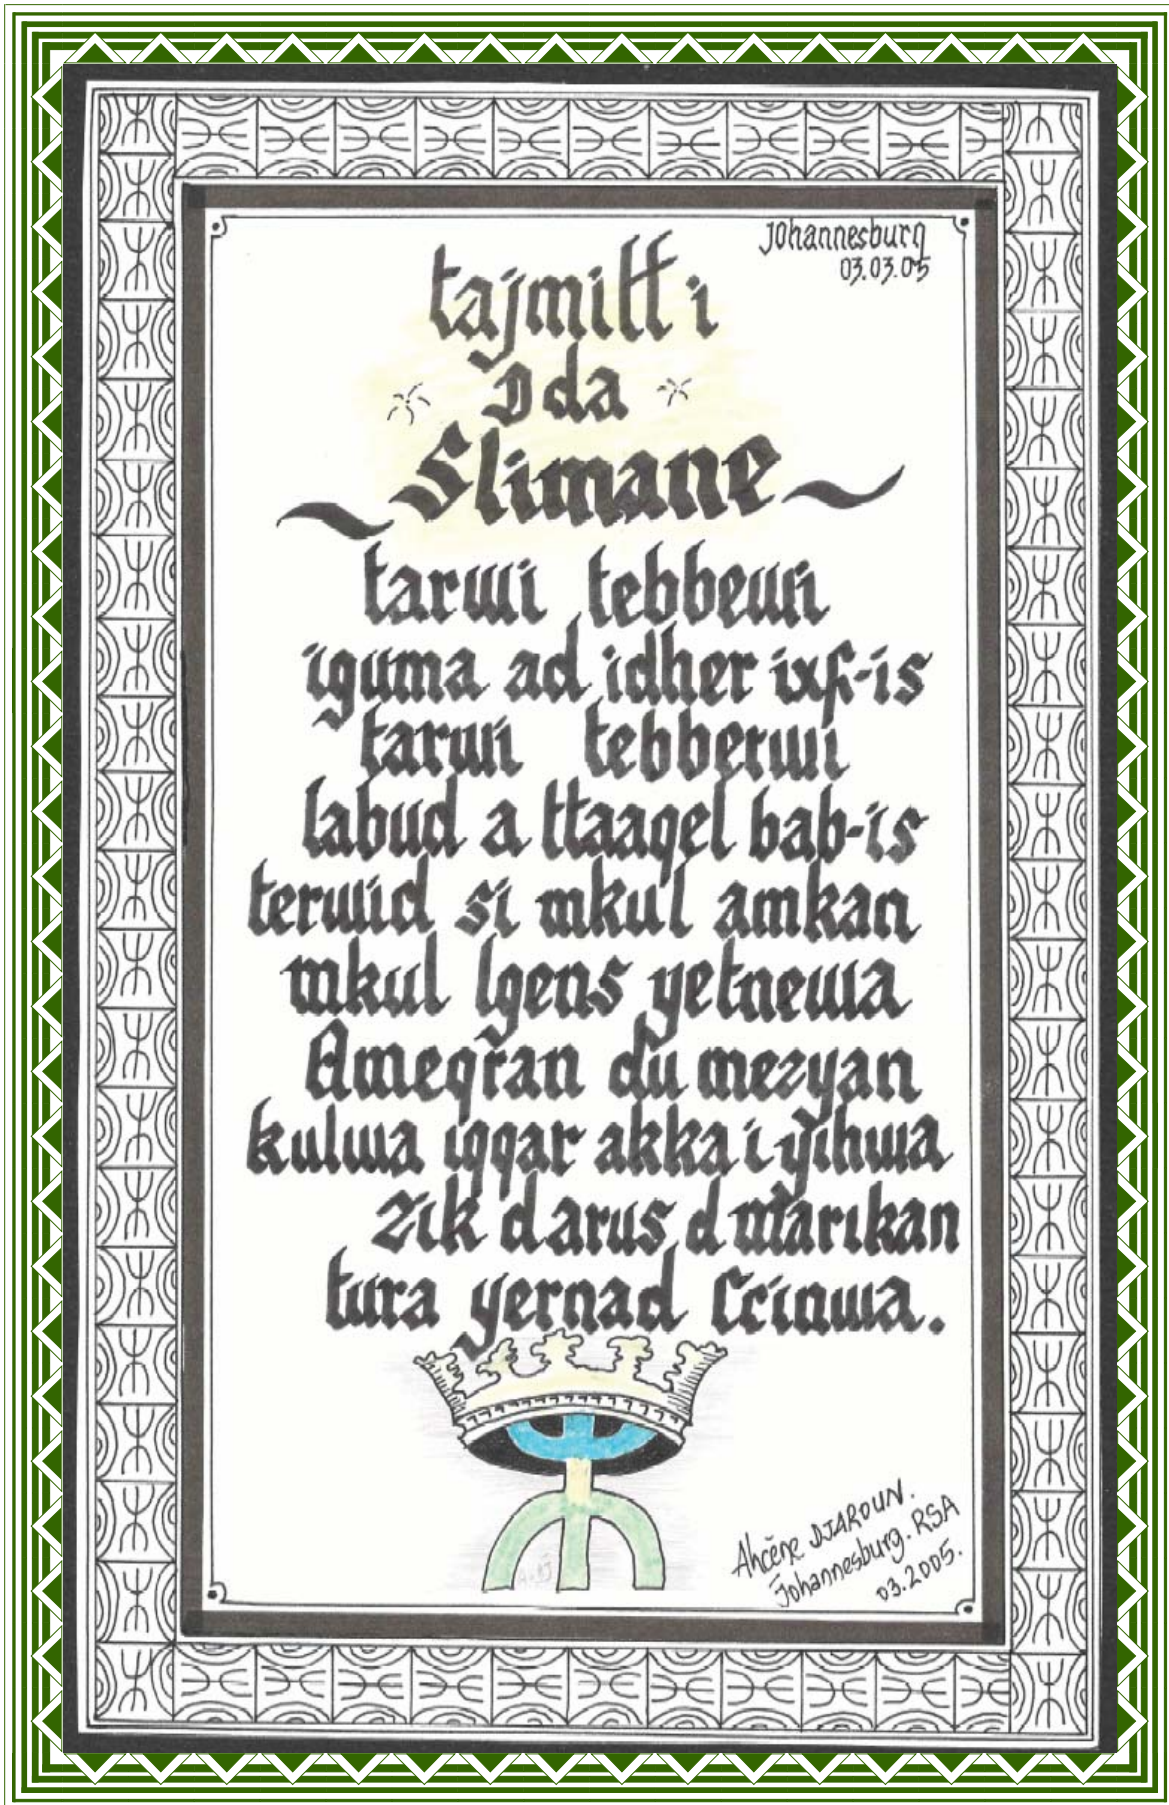 Johannesburg
03.03.05
tajmilt i
Dda
Slimane
tarwi tebbewi
iguma ad idher ixf-is
tarwi tebberwi
labud a ttaaqel bab-is
terwid si mkul amkan
mkul lgens yetnewa
Ameqran du mezyan
kulwa iqqar akka i yihwa
Zik d arus d marikan
tura yernad ccinwa.
Ahcène DJAROUN.
Johannesburg. RSA
03.2005.